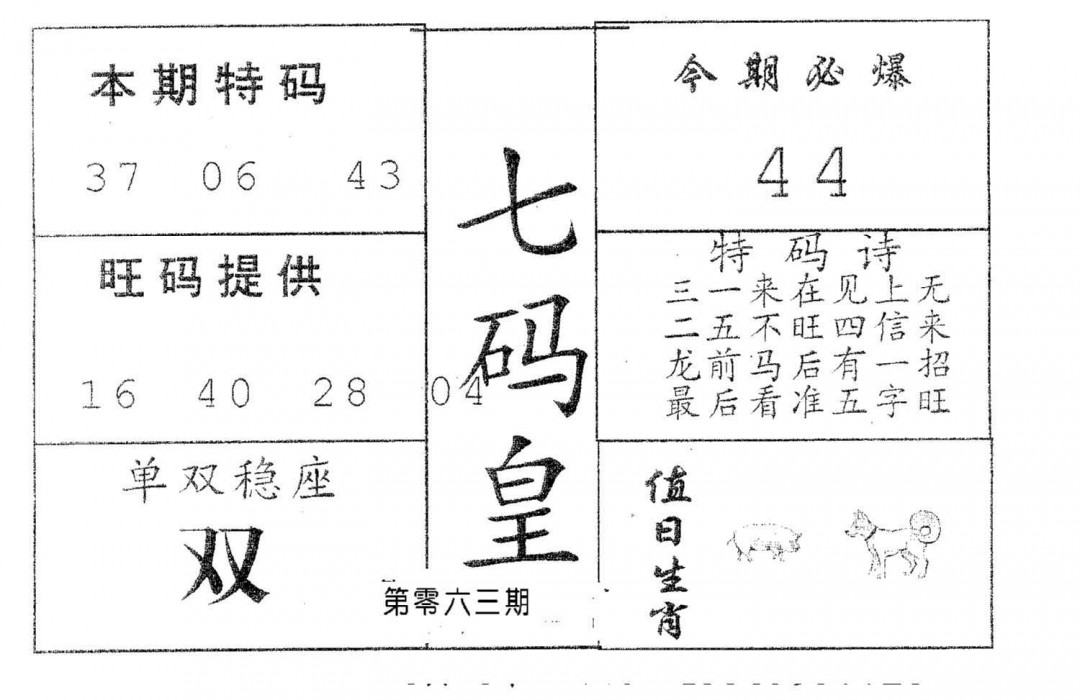 本期特码
37 06 43
旺码提供
16 40 28 04
单双稳座
双
七码皇
第零六三期
今期必爆
44
特码诗
三一来在见上无
二五不旺四信来
龙前马后有一招
最后看准五字旺
值日生肖